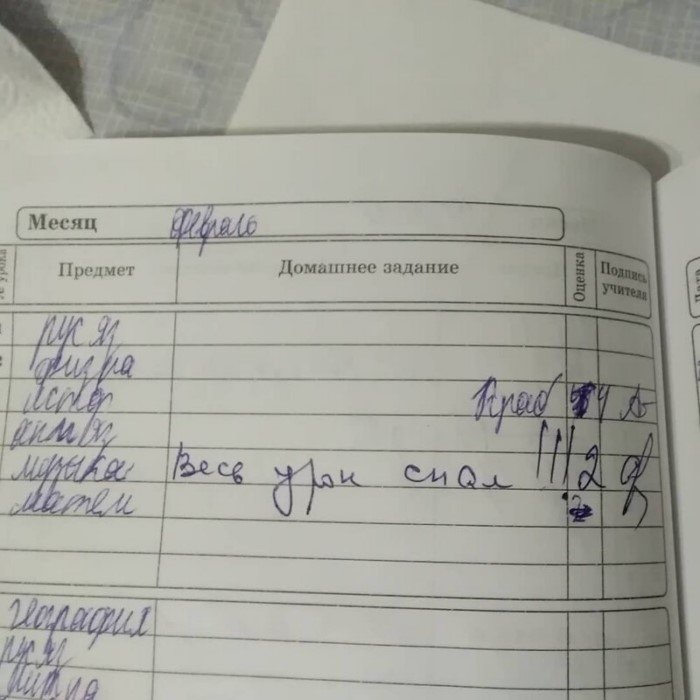 Месяц февраль
№ урока Предмет Домашнее задание Оценка Подпись учителя
рус яз
физ ра
истор Краб 4
англ яз
музыка Весь урок спал !!! 2
матем 2
география
рус яз
Дата